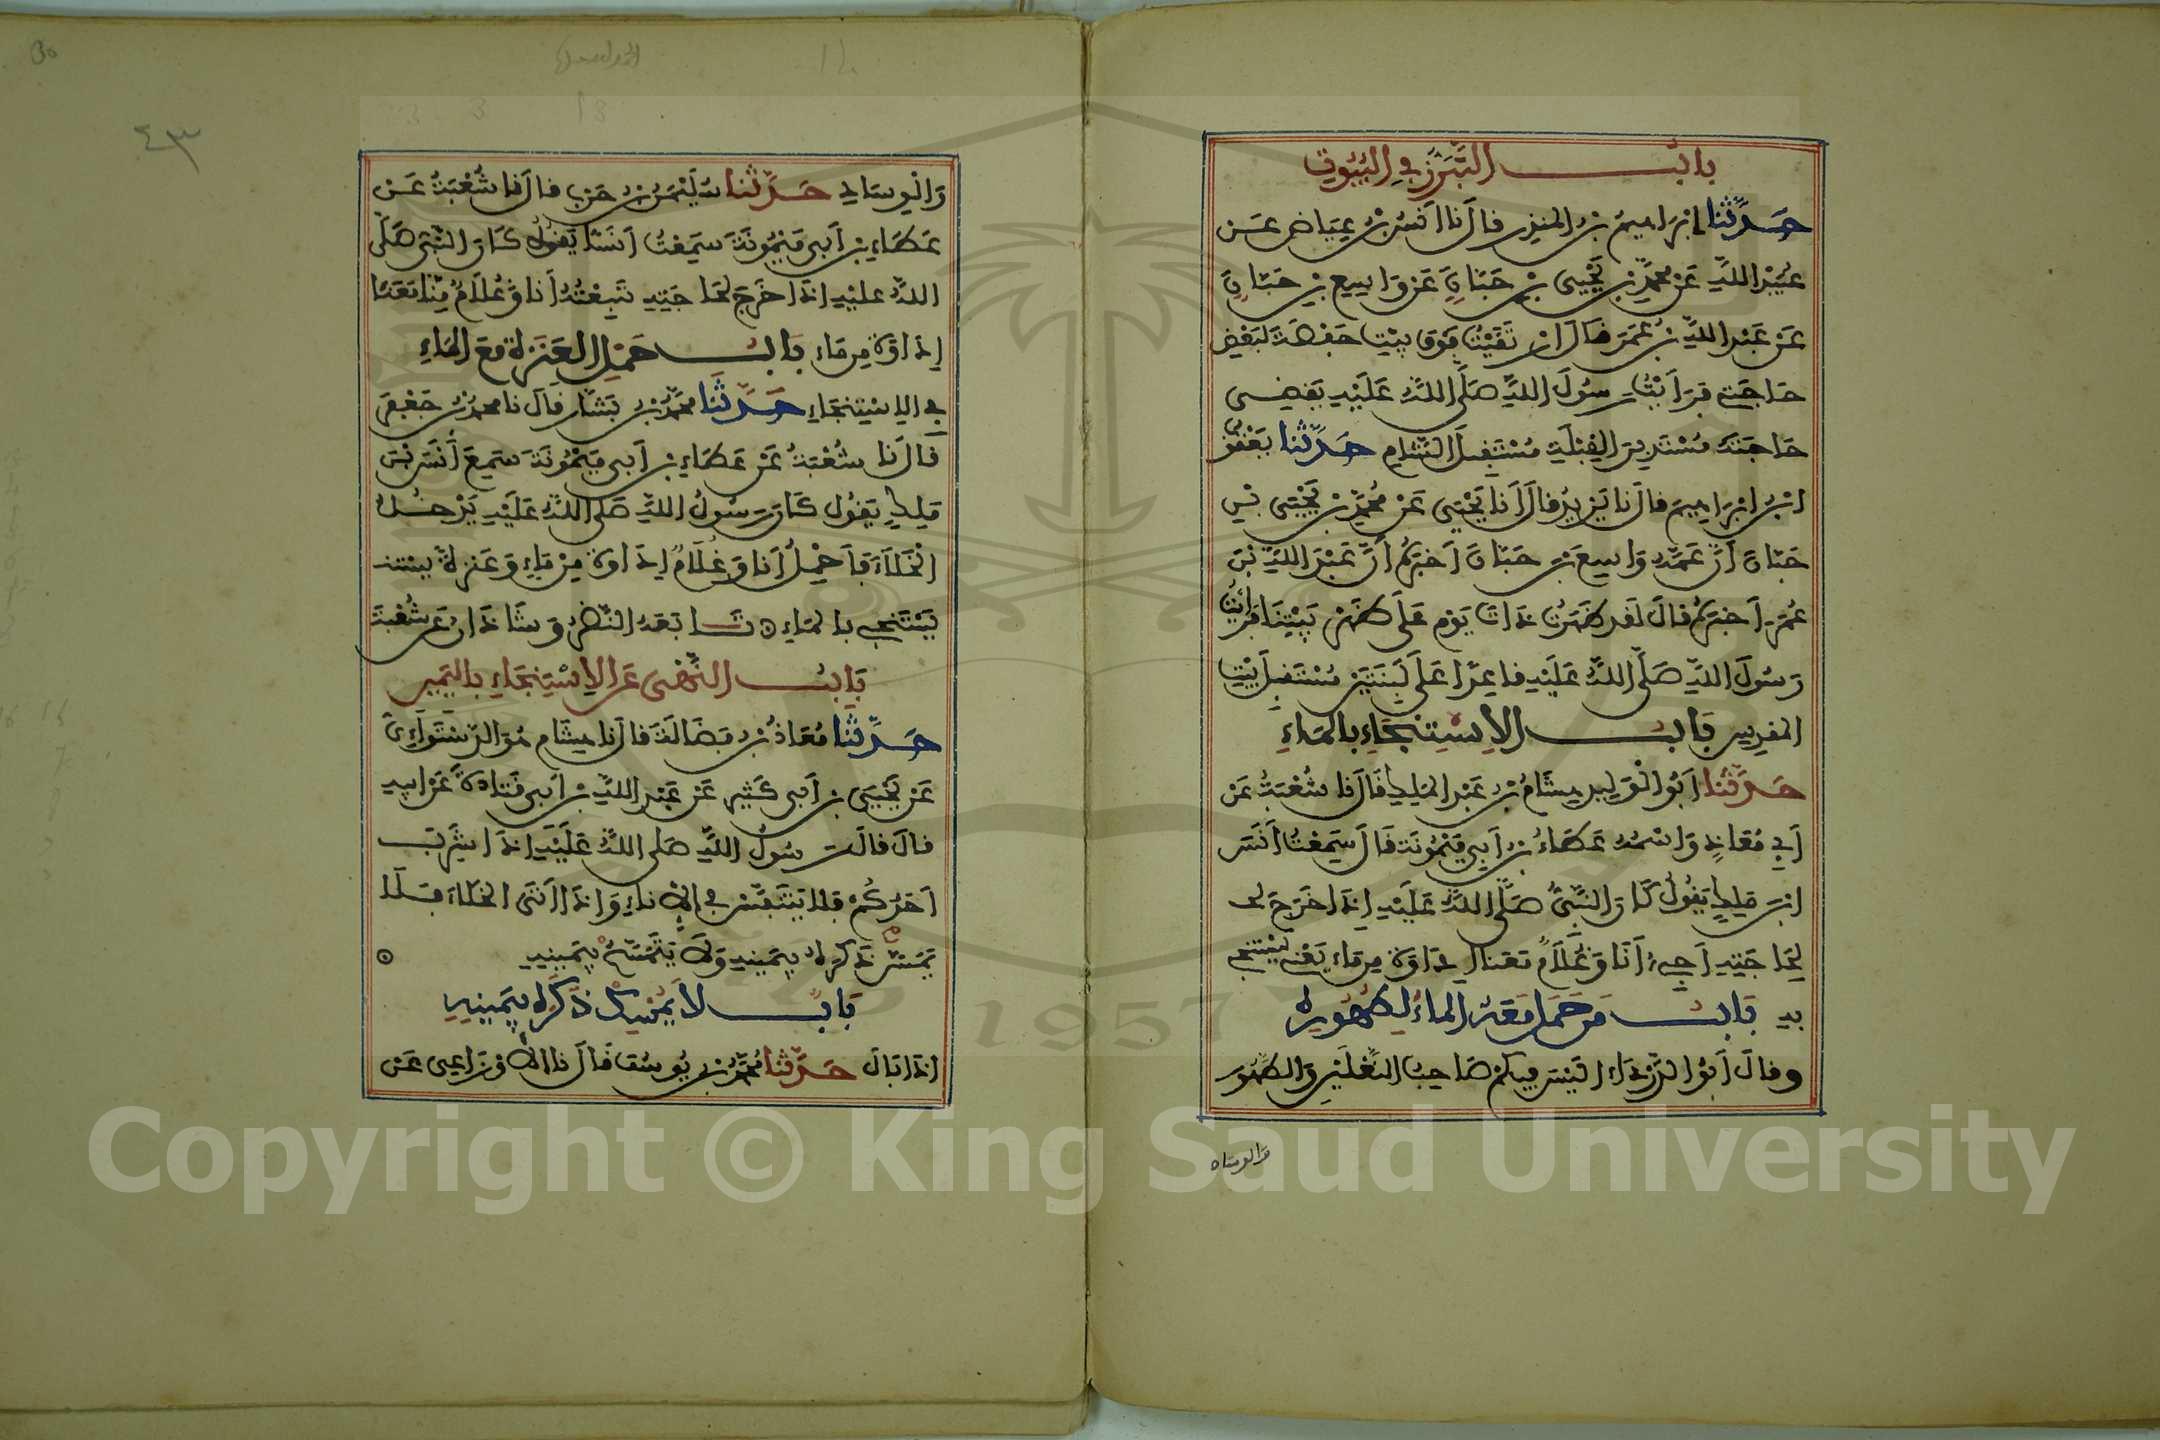 باب التَّبَرُّزِ فِي الْبُيُوتِ
حَدَّثَنَا إِبْرَاهِيمُ بْنُ الْمُنْذِرِ قَالَ نَا أَنَسُ بْنُ عِيَاضٍ عَنْ
عُبَيْدِ اللَّهِ عَنْ مُحَمَّدِ بْنِ يَحْيَى بْنِ حَبَّانَ عَنْ وَاسِعِ بْنِ حَبَّانَ
عَنْ عَبْدِ اللَّهِ بْنِ عُمَرَ قَالَ ارْتَقَيْتُ فَوْقَ بَيْتِ حَفْصَةَ لِبَعْضِ
حَاجَتِي فَرَأَيْتُ رَسُولَ اللَّهِ صَلَّى اللَّهُ عَلَيْهِ يَقْضِي
حَاجَتَهُ مُسْتَدْبِرَ الْقِبْلَةِ مُسْتَقْبِلَ الشَّامِ حَدَّثَنَا يَعْقُوبُ
ابْنُ إِبْرَاهِيمَ قَالَ نَا يَزِيدُ قَالَ أَنَا يَحْيَى عَنْ مُحَمَّدِ بْنِ يَحْيَى بْنِ
حَبَّانَ أَنَّ عَمَّهُ وَاسِعَ بْنَ حَبَّانَ أَخْبَرَهُ أَنَّ عَبْدَ اللَّهِ بْنَ
عُمَرَ أَخْبَرَهُ قَالَ لَقَدْ ظَهَرْتُ ذَاتَ يَوْمٍ عَلَى ظَهْرِ بَيْتِنَا فَرَأَيْتُ
رَسُولَ اللَّهِ صَلَّى اللَّهُ عَلَيْهِ قَاعِدًا عَلَى لَبِنَتَيْنِ مُسْتَقْبِلَ بَيْتِ
الْمَقْدِسِ بَابُ الِاسْتِنْجَاءِ بِالْمَاءِ
حَدَّثَنَا أَبُو الْوَلِيدِ هِشَامُ بْنُ عَبْدِ الْمَلِكِ قَالَ نَا شُعْبَةُ عَنْ
أَبِي مُعَاذٍ وَاسْمُهُ عَطَاءُ بْنُ أَبِي مَيْمُونَةَ قَالَ سَمِعْتُ أَنَسَ
ابْنَ مَلِكٍ يَقُولُ كَانَ النَّبِيُّ صَلَّى اللَّهُ عَلَيْهِ إِذَا خَرَجَ لحـ
لِحَاجَتِهِ أَجِيءُ أَنَا وَغُلَامٌ مَعَنَا إِدَاوَةٌ مِنْ مَاءٍ يَعْنِي يَسْتَنْجِي
بِهِ بَابُ مَنْ حُمِلَ مَعَهُ الْمَاءُ لِطُهُورِهِ
وَقَالَ أَبُو الدَّرْدَاءِ أَلَيْسَ فِيكُمْ صَاحِبُ النَّعْلَيْنِ وَالطَّهُورِ
والوساد
٤٣
وَالْوِسَادِ حَدَّثَنَا سُلَيْمَنُ بْنُ حَرْبٍ قَالَ نَا شُعْبَةُ عَنْ
عَطَاءِ بْنِ أَبِي مَيْمُونَةَ سَمِعْتُ أَنَسًا يَقُولُ كَانَ النَّبِيُّ صَلَّى
اللَّهُ عَلَيْهِ إِذَا خَرَجَ لِحَاجَتِهِ تَبِعْتُهُ أَنَا وَغُلَامٌ مِنَّا مَعَنَا
إِدَاوَةٌ مِنْ مَاءٍ بَابُ حَمْلِ الْعَنَزَةِ مَعَ الْمَاءِ
فِي الِاسْتِنْجَاءِ حَدَّثَنَا مُحَمَّدُ بْنُ بَشَّارٍ قَالَ نَا مُحَمَّدُ بْنُ جَعْفَرٍ
قَالَ نَا شُعْبَةُ عَنْ عَطَاءِ بْنِ أَبِي مَيْمُونَةَ سَمِعَ أَنَسَ بْنَ
مَلِكٍ يَقُولُ كَانَ رَسُولُ اللَّهِ صَلَّى اللَّهُ عَلَيْهِ يَدْخُلُ
الْخَلَاءَ فَأَحْمِلُ أَنَا وَغُلَامٌ إِدَاوَةً مِنْ مَاءٍ وَعَنَزَةً يستنـ
يَسْتَنْجِي بِالْمَاءِ تَابَعَهُ النَّضْرُ وَشَاذَانُ عَنْ شُعْبَةَ
بَابُ النَّهْيِ عَنِ الِاسْتِنْجَاءِ بِالْيَمِينِ
حَدَّثَنَا مُعَاذُ بْنُ فَضَالَةَ قَالَ نَا هِشَامٌ هُوَ الدَّسْتَوَاءِيُّ
عَنْ يَحْيَى بْنِ أَبِي كَثِيرٍ عَنْ عَبْدِ اللَّهِ بْنِ أَبِي قَتَادَةَ عَنْ أَبِيهِ
قَالَ قَالَ رَسُولُ اللَّهِ صَلَّى اللَّهُ عَلَيْهِ إِذَا شَرِبَ
أَحَدُكُمْ فَلَا يَتَنَفَّسْ فِي الْإِنَاءِ وَإِذَا أَتَى الْخَلَاءَ فَلَا
يَمَسَّ ذَكَرَهُ بِيَمِينِهِ وَلَا يَتَمَسَّحْ بِيَمِينِهِ
بَابُ لَا يُمْسِكُ ذَكَرَهُ بِيَمِينِهِ
إِذَا بَالَ حَدَّثَنَا مُحَمَّدُ بْنُ يُوسُفَ قَالَ نَا الْأَوْزَاعِي عَنْ
1957
Copyright © King Saud University